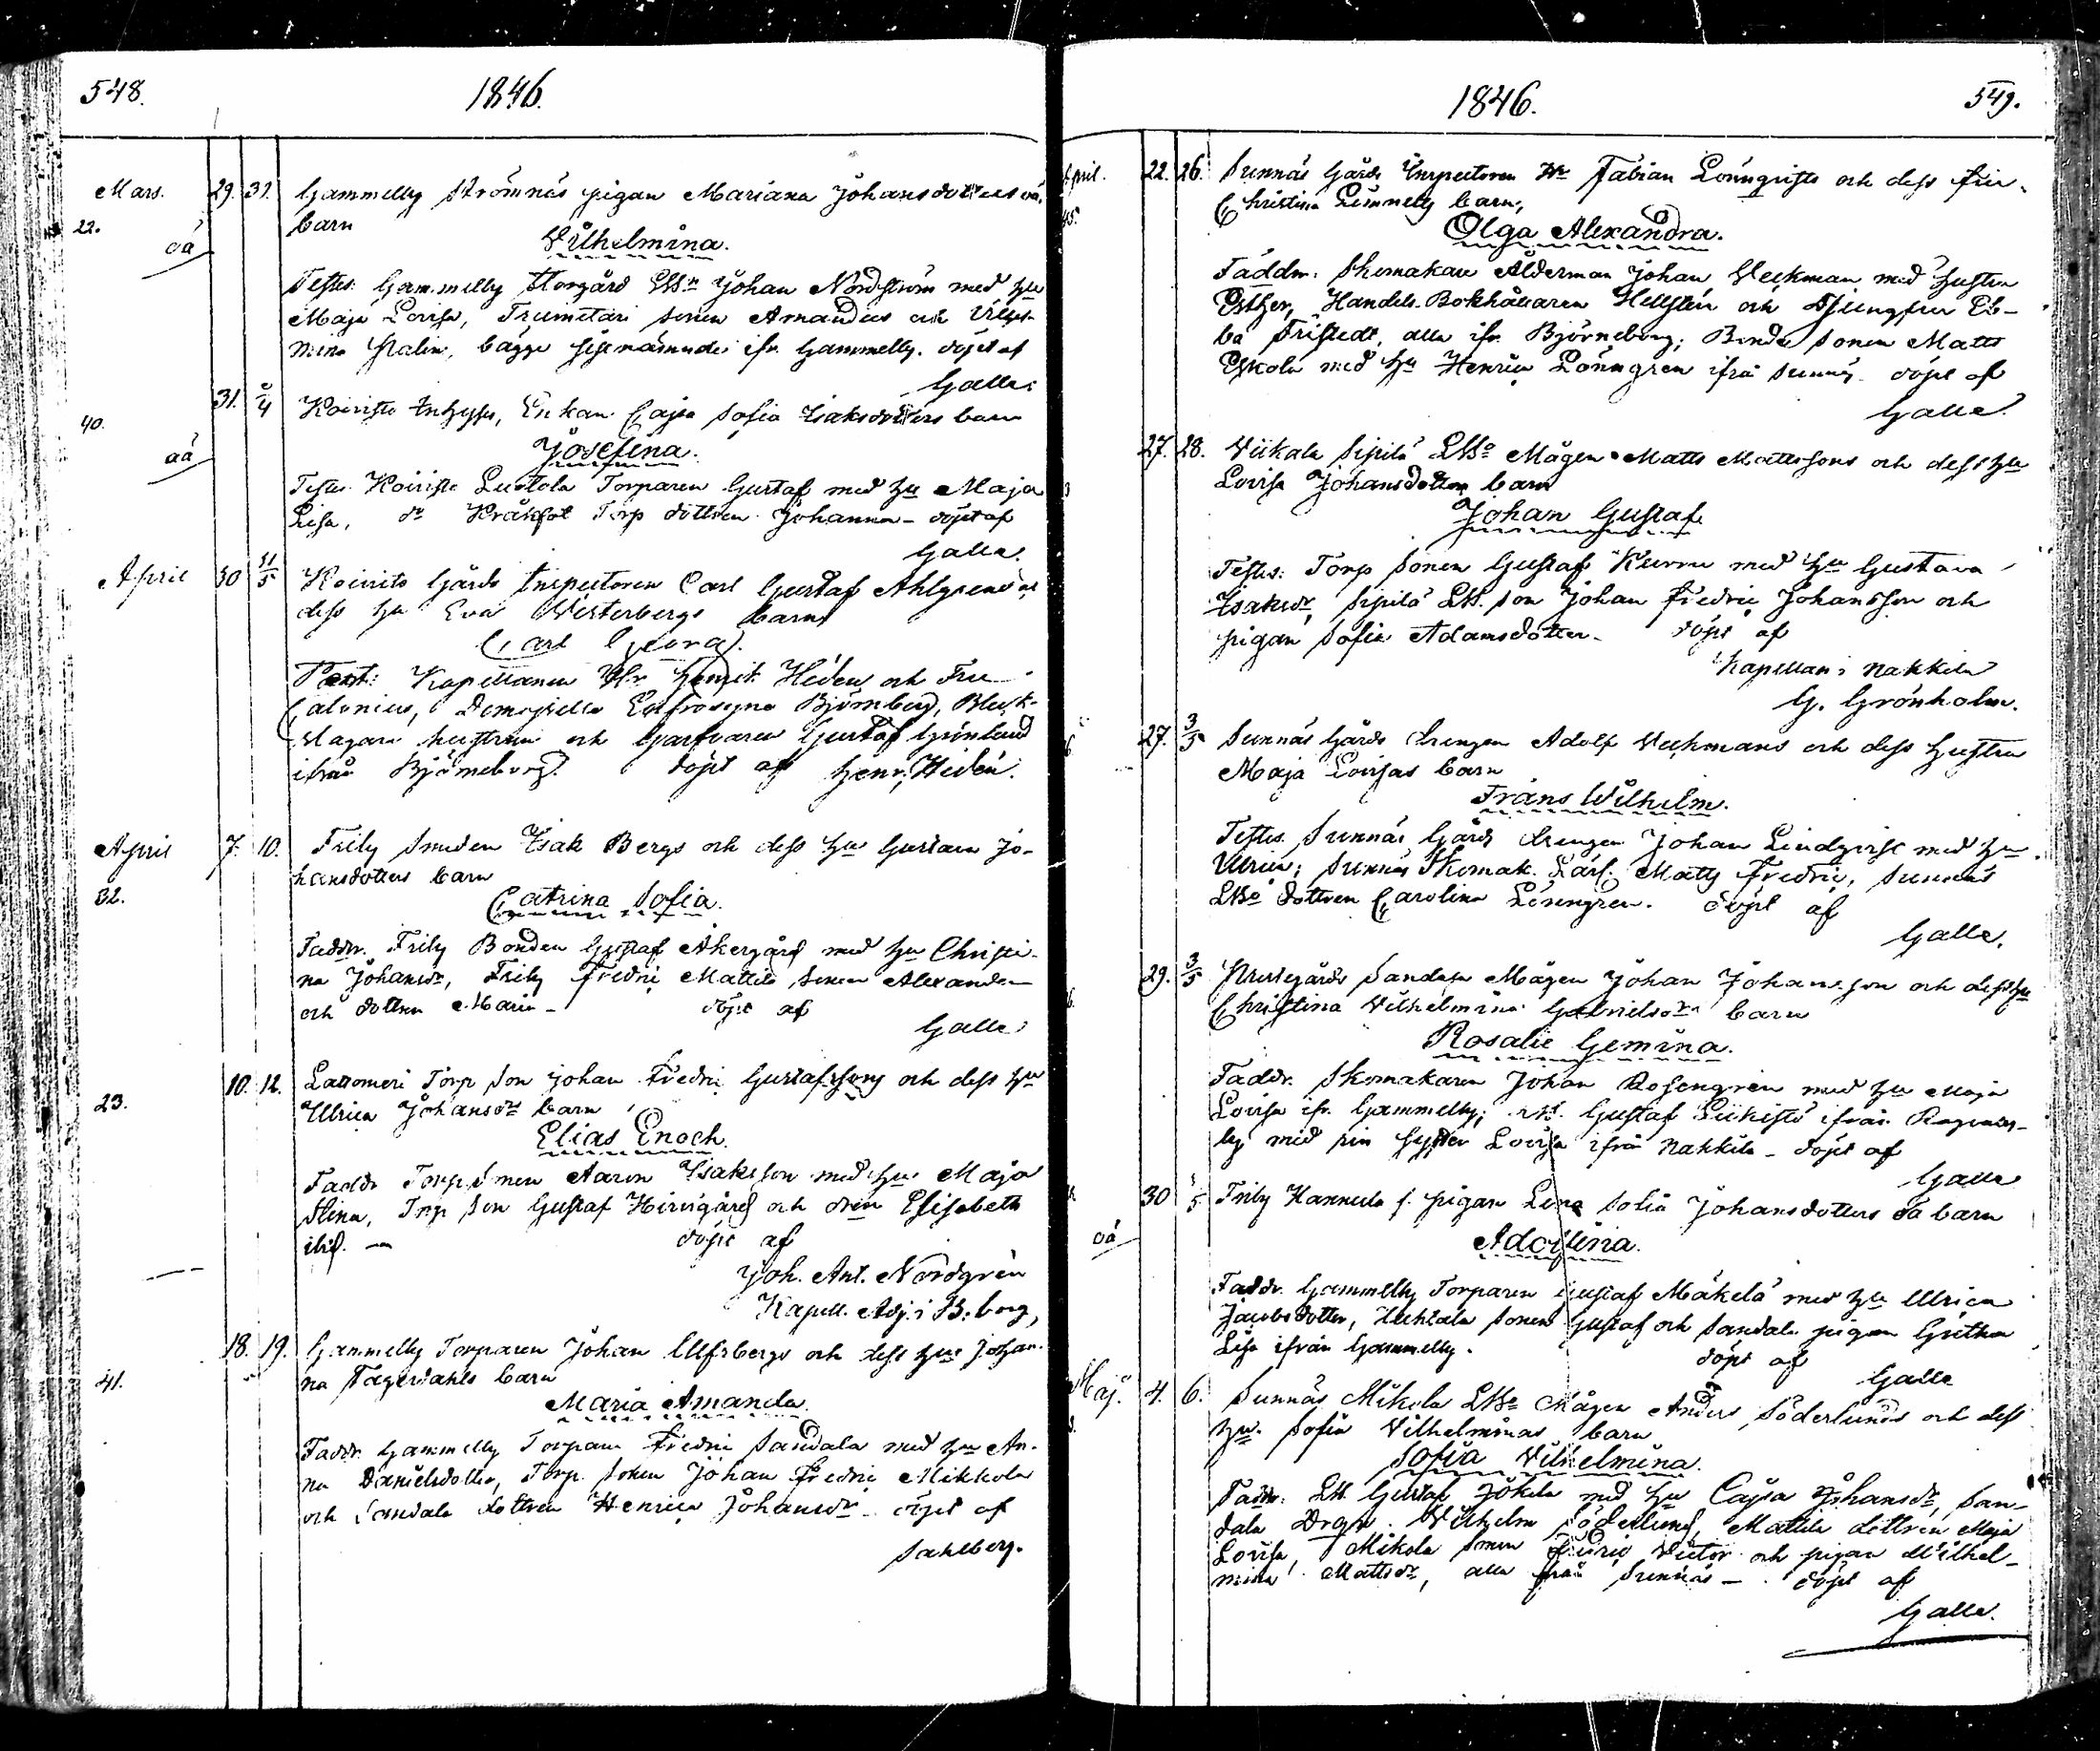 548.
1846.
Mars. 29. 31. Gammelby Strömnäs pigan Mariana Johansdotters oä.
22. barn
oä Wilhelmina.
Testes: Gammelby Storgård Johan Nordström med hu
Maja Lovisa, Trumetari sonen Amandus och Vilhel-
mina Stalin, bägge hemmande ifr. Gammelby. döpt af
Galle.
31. 2/4 Koivisto Inhyses, Enkan Cajsa Sofia Isaksdotters barn
40.
Josefina.
oä
Testes. Koivisto Luotola Torparen Gustaf med hu Maja
Lisa, do Kråkfot Torp dottren Johanna - döpt af
Galle.
April 30 11/5 Koivisto Gårds Inspectoren Carl Gustaf Ahlgrens och
dess hu Eva Westerbergs barn
Carl Georg.
Test: Kapellanen Hr Henrik Hedén och Fru
Calonius, Demoiselle Eufrosyne Björnberg, Bleck-
slagare hustrun och Garfvaren Gustaf Grönlund
ifrån Björneborg. döpt af Henr. Hedén.
April 7. 10. Friby Smeden Isak Bergs och dess hu Gustava Jo-
hansdotters barn
32.
Catrina Sofia.
Faddr. Friby Bonden Gustaf Åkergård med hu Christi-
na Johansdr, Friby Fredric Mattila sonen Alexander
och dottren Maria - döpt af
Galle.
10. 12. Lattomeri Torp Son Johan Fredric Gustafssons och dess hu
23. Ulrica Johansdrs barn
Elias Enoch.
Faddr Torp Sonen Aaron Isaksson med hu Maja
Stina, Torp Son Gustaf Heinigård och Elisabeth
ibid. — döpt af
Joh. Ant. Nordgrén
Kapell. Adj. i B:borg,
18. 19. Gammelby Torparen Johan Ulfsbergs och dess hu Johan-
41. na Fagerdahls barn
Maria Amanda.
Faddr. Gammelby Torparen Fredric Sandala med hu An-
na Danielsdotter, Torp. Sonen Johan Fredric Mikkola
och Sandala dottren Henrica Johansdr - döpt af
Sahlberg.
1846.
549.
April. 22. 26. Sunnäs Gårds Inspectoren Hr Fabian Lönnqvists och dess Fru
Christina barn,
Olga Alexandra.
Faddr: Skomakare Ålderman Johan Weckman med hustru
Esther, Handels-Bokhållaren Hellstén och Jungfru Eb-
ba Fristedt, alla ifr. Björneborg; Bonde Sonen Matts
Eskola med hu Henrica Lönngren ifrån Sunnäs. döpt af
Galle
27. 28. Wiikala Sipilä LBo Mågen Matts Mattssons och dess hu
Lovisa Johansdotters barn
Johan Gustaf.
Testes: Torp Sonen Gustaf med hu Gustava
Isaksdr, Sipilä LB. Son Johan Fredric Johansson och
pigan Sofia Adamsdotter - döpt af
Kapellan i Nakkila
G. Grönholm.
27. 3/5 Sunnäs Gårds Drengen Adolf Weckmans och dess hustru
Maja Lovisas barn
Frans Wilhelm.
Testes. Sunnäs Gårds Drengen Johan Lindqvist med hu
Ulrica; Sunnäs Skomak. Lärl. Matts Fredric, Sunnäs
LBo dottren Carolina Lönngren. döpt af
Galle.
29. 3/5 Sandala Mågen Johan Johansson och dess hu
Christina Vilhelmina Gabrielsdrs barn
Rosalie Gemina.
Faddr. Skomakaren Johan Rosengren med hu Maja
Lovisa ifr. Gammelby; Gustaf ifrån Ragvalds-
by med sin syster Lovisa ifrån Nakkila - döpt af
Galle
30 5 Friby Hannula f. pigan Lena Sofia Johansdotters oä barn
oä Adolfina.
Faddr. Gammelby Torparen Gustaf Mäkelä med hu Ulrica
Jacobsdotter, Uchtala Sonen Gustaf och Sandala pigan Gretha
Lisa ifrån Gammelby. döpt af
Galle
Maj. 4. 6. Sunnäs Mikola LBo Mågen Anders Söderlunds och dess
hu. Sofia Vilhelminas barn
Sofia Vilhelmina.
Faddr: LB. Gustaf Jokela med hu Cajsa Johansdr, San-
dala Drgn. Wilhelm Söderlund, Mattila dottren Maja
Lovisa, Mikola Sonen Victor och pigan Wilhel-
mina Mattsdr, alla från Sunnäs - döpt af
Galle.